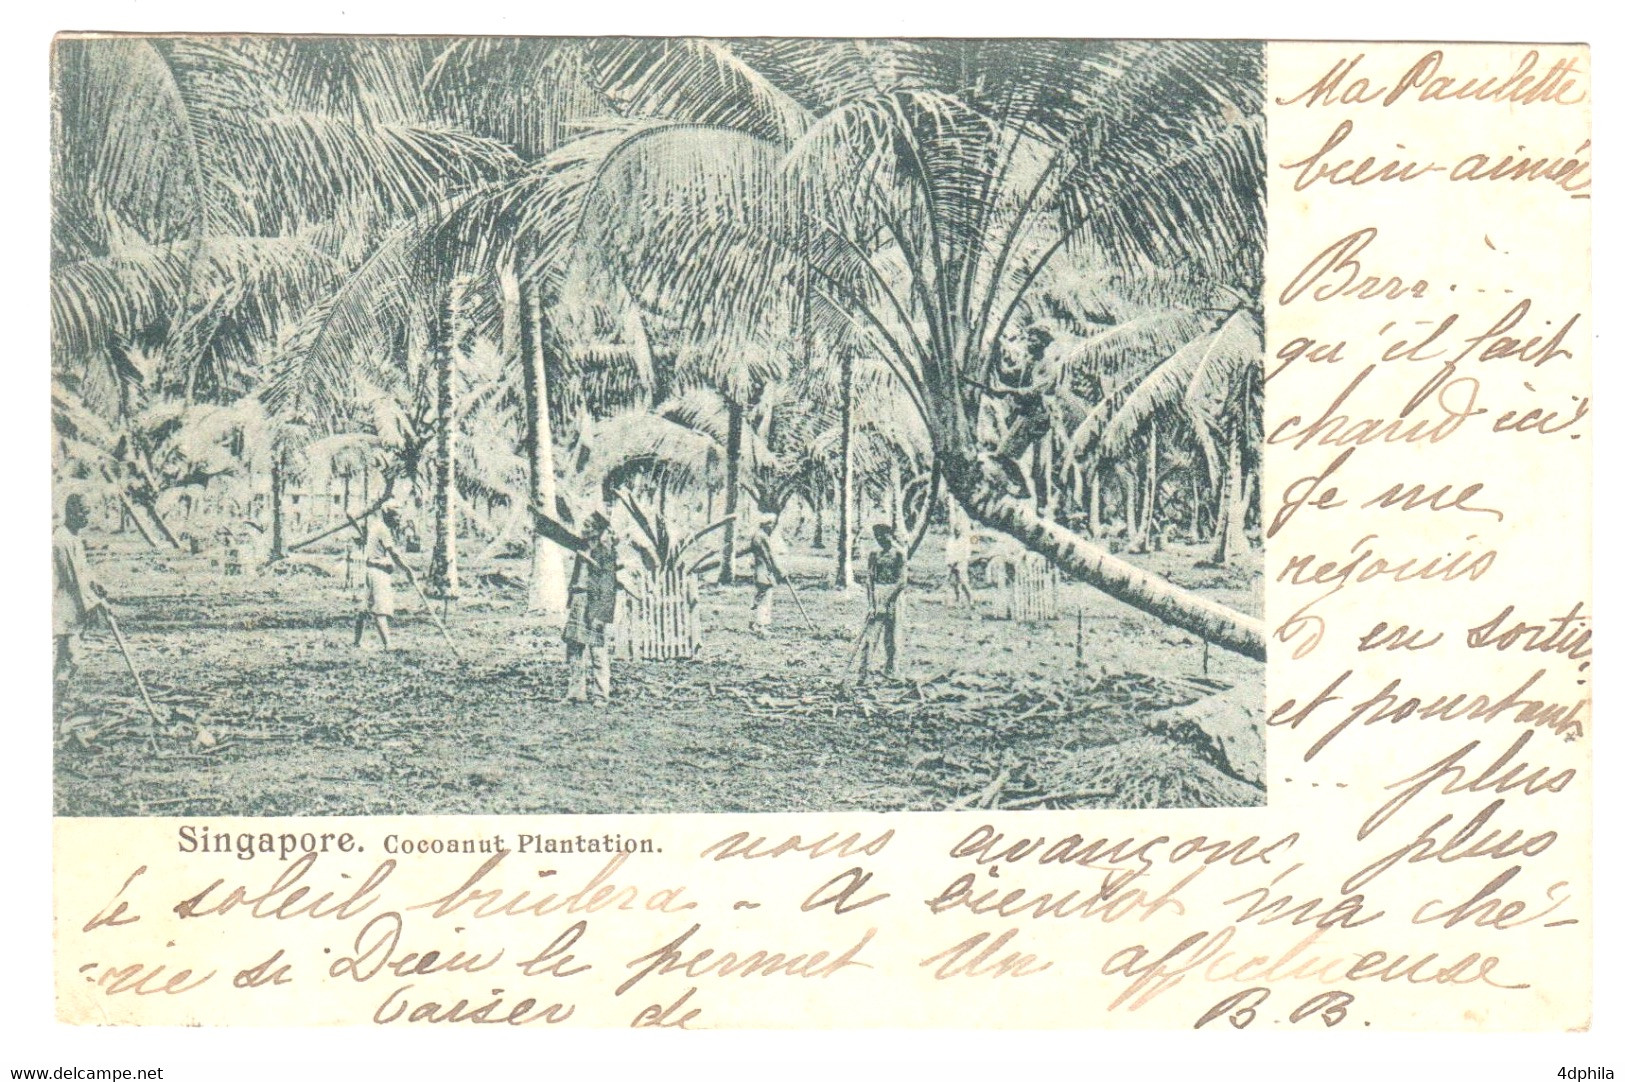 Ma Paulette
bien-aimée
Brrr....
qu'il fait
chaud ici.
Je me
réjouis
d en sortir,
et pourtant
... plus
Singapore. Cocoanut Plantation. nous avançons, plus
le soleil brûlera - A bientôt ma ché-
-rie si Dieu le permet Un affectueuse
baiser de B. B.
www.delcampe.net
4dphila